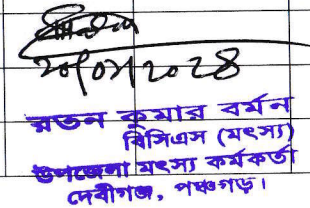 ২০/০৭/২০২৪
রতন কুমার বর্মন
বিসিএস (মৎস্য)
উপজেলা মৎস্য কর্মকর্তা
দেবীগঞ্জ, পঞ্চগড়।